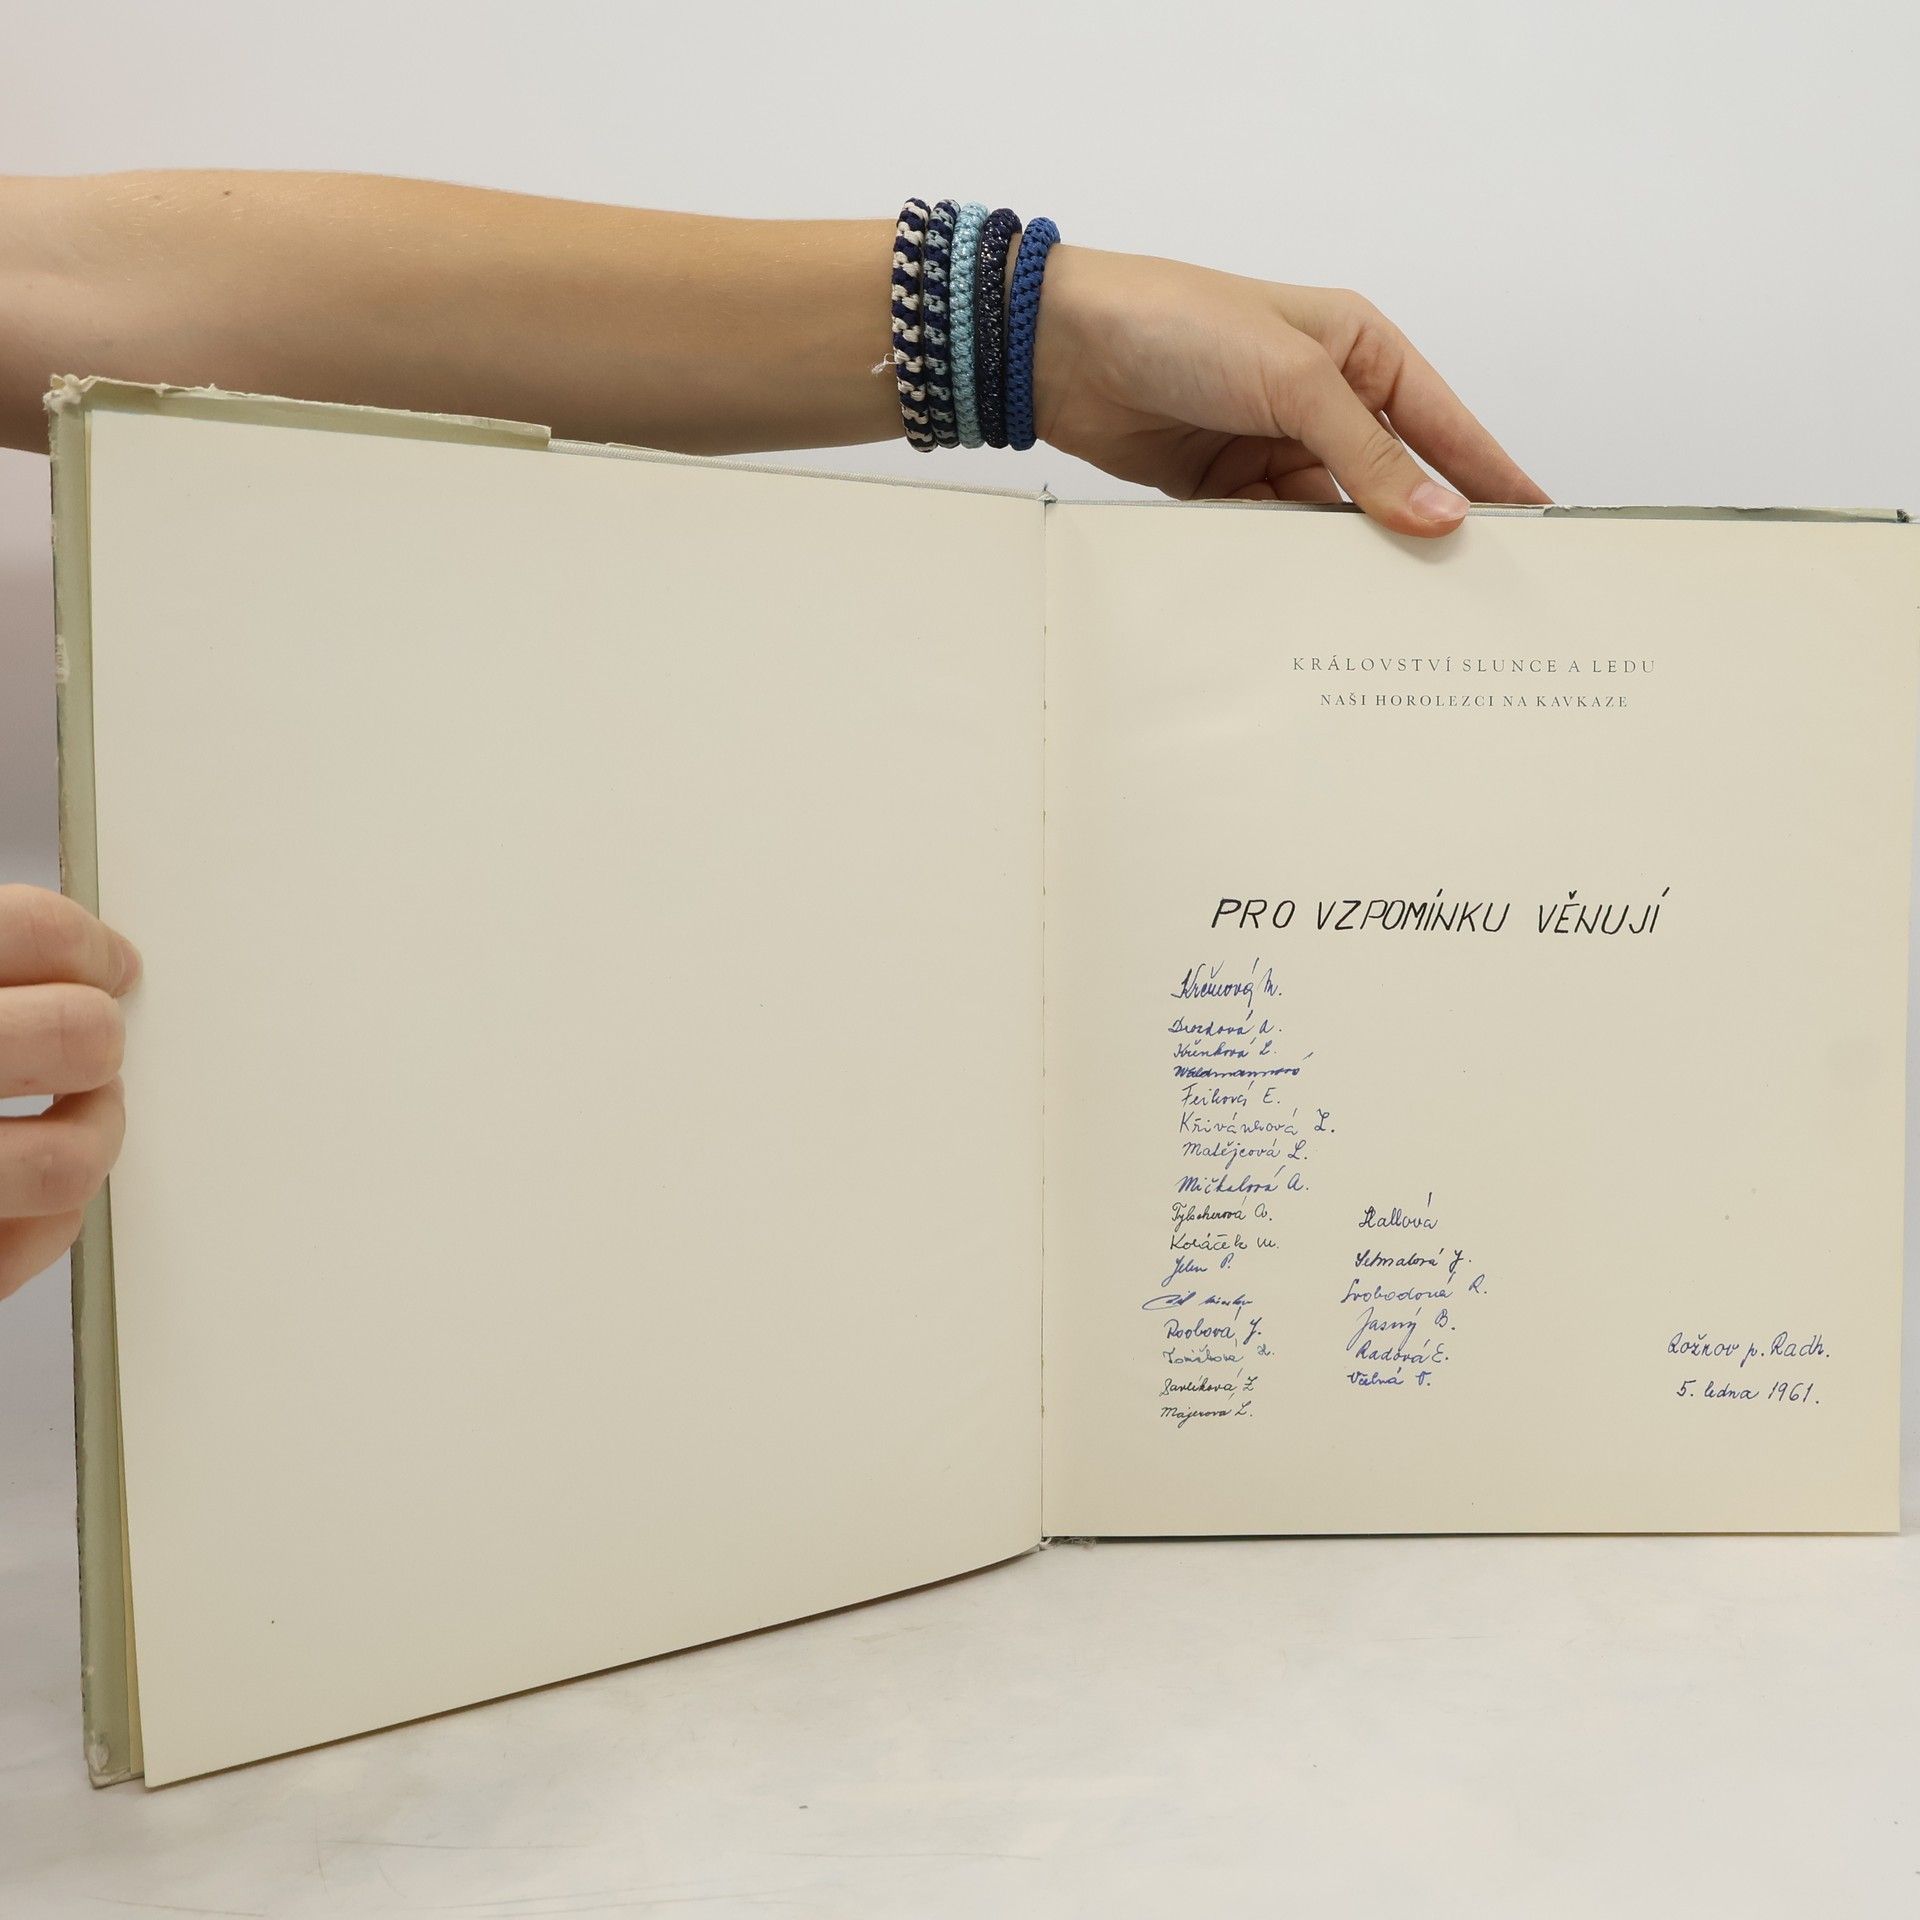 KRÁLOVSTVÍ SLUNCE A LEDU
NAŠI HOROLEZCI NA KAVKAZE
PRO VZPOMÍNKU VĚNUJÍ
Křenová M.
Drozdová A.
Křenková L.
Waldmannová
Feiková E.
Křivánková L.
Matějcová L.
Mičkalová A.
Tylscherová A.
Koláček M.
Jelen P.
Roobová J.
Tomášková H.
Pavlíková Z
Majerova L.
Hallová
Schmalová J.
Svobodová R.
Jasný B.
Radová E.
Včelná V.
Rožnov p. Radh.
5. ledna 1961.